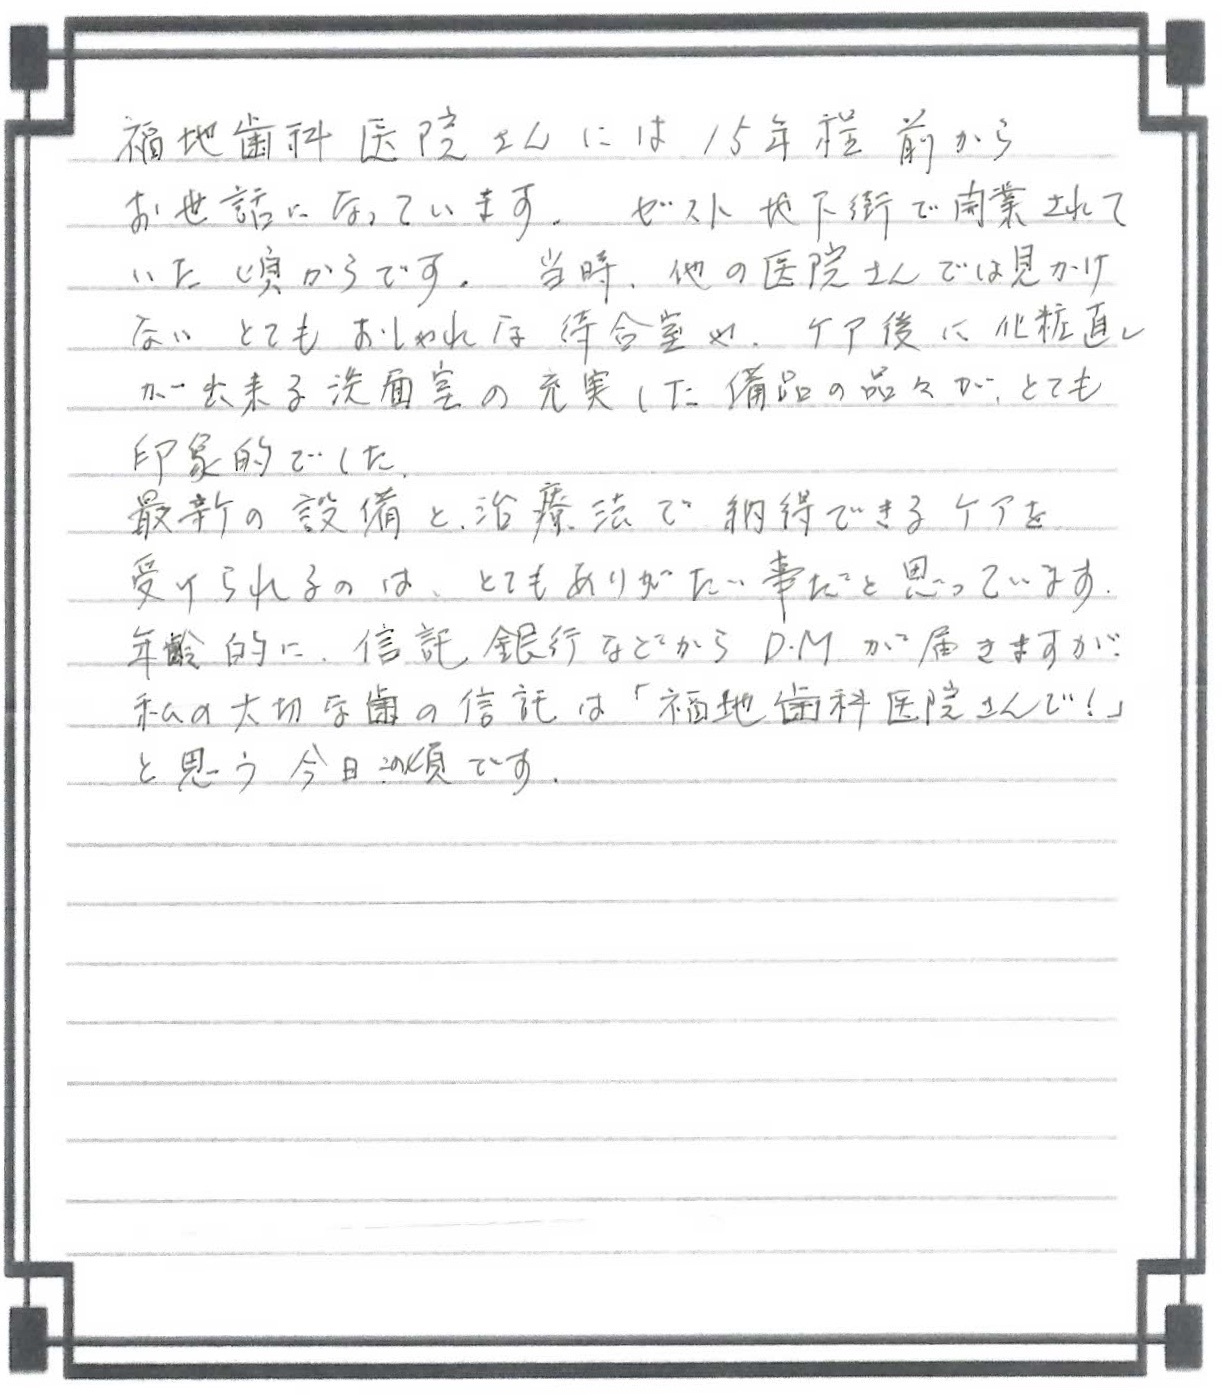 福地歯科医院さんには15年程前から
お世話になっています。ゼスト地下街で開業されて
いた頃からです。当時、他の医院さんでは見かけ
ないとてもおしゃれな待合室や、ケア後に化粧直し
が出来る洗面室の充実した備品の品々が、とても
印象的でした。
最新の設備と、治療法で納得できるケアを
受けられるのは、とてもありがたい事だと思っています。
年齢的に、信託銀行などからD.Mが届きますが、
私の大切な歯の信託は「福地歯科医院さんで!」
と思う今日この頃です。